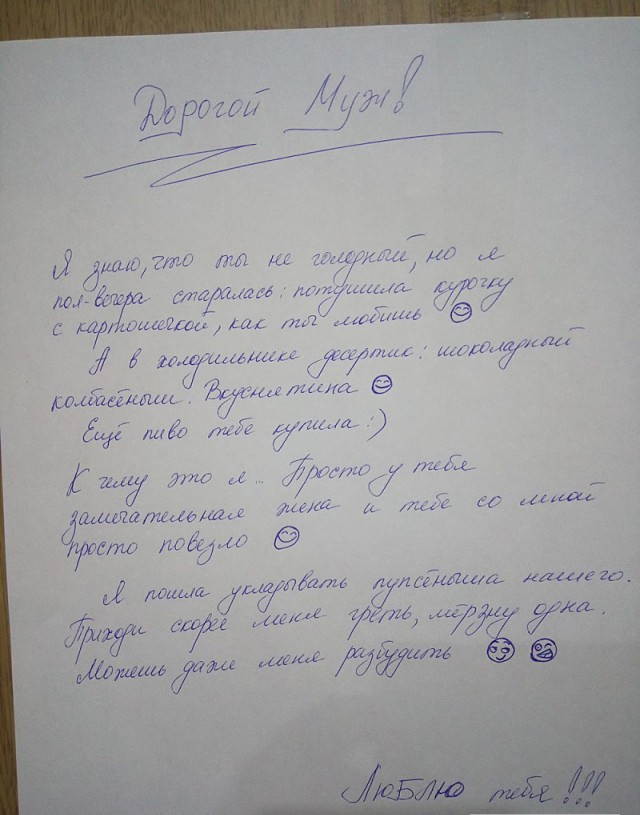 Дорогой Муж!
Я знаю, что ты не голодный, но я
пол-вечера старалась: потушила курочку
с картошечкой, как ты любишь
А в холодильнике десертик: шоколадный
колбасёныш. Вкуснятина
Ещё пиво тебе купила :)
К чему это я... Просто у тебя
замечательная жена и тебе со мной
просто повезло
Я пошла укладывать пупсёныша нашего.
Приходи скорее меня греть, мёрзну одна.
Можешь даже меня разбудить
Люблю тебя!!!